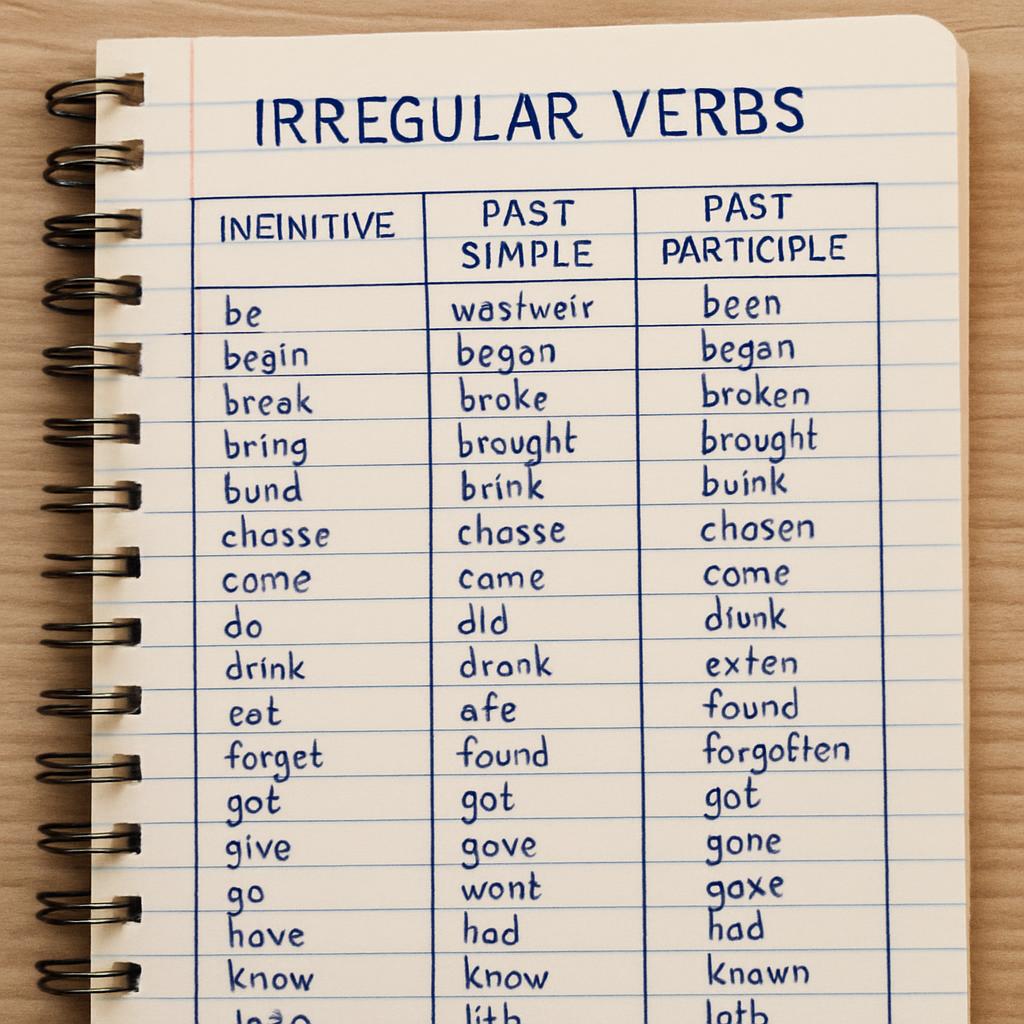 IRREGULAR VERBS
INEINITIVE PAST SIMPLE PAST PARTICIPLE
be wastweir been
begin began began
break broke broken
bring brought brought
bund brink buink
chosse chosse chosen
come came come
do dld drunk
drink dronk exten
eat afe found
forget found forgoften
got got got
give gove gone
go wont goxe
hove hod hod
know know knawn